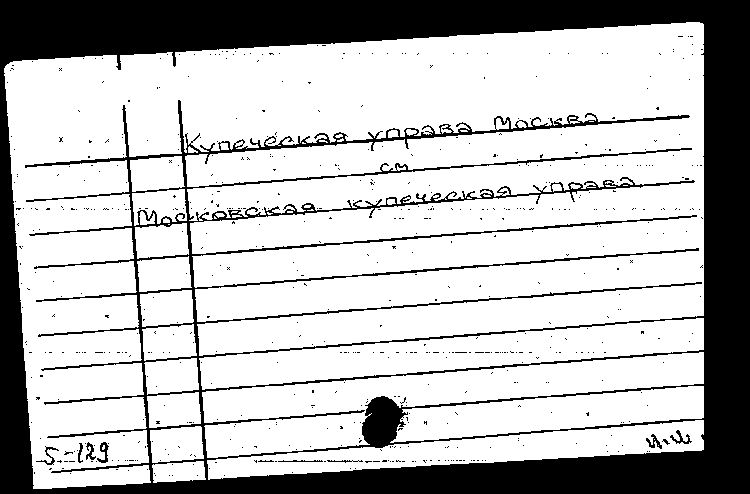 Купеческая управа Москва
см
Московская купеческая управа
5-129